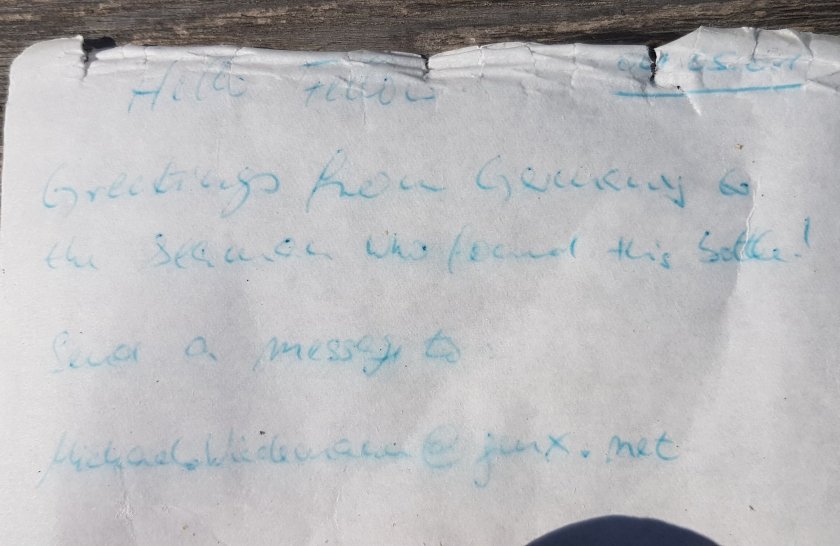 Hello Fellow
Greetings from Germany to
the Seaman who found this bottle!
Send a message to
Michael.Wiedemann@gmx.net